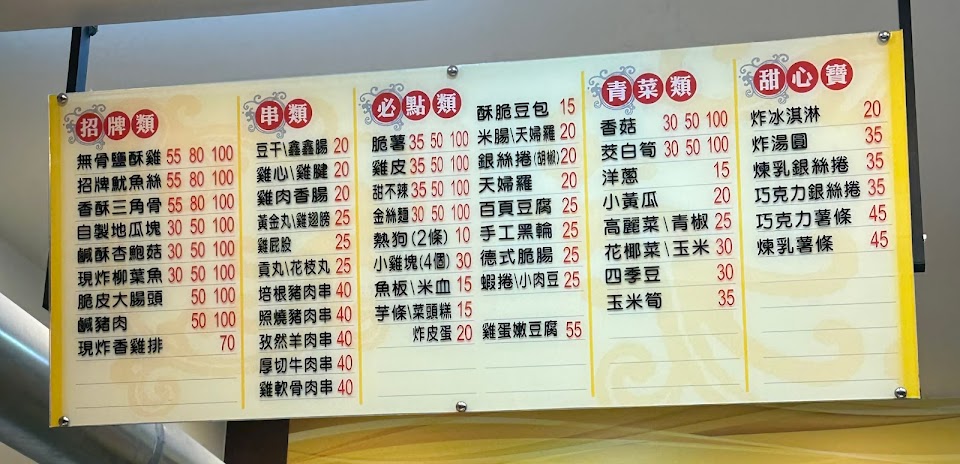 招牌類
無骨鹽酥雞 55 80 100
招牌魷魚絲 55 80 100
香酥三角骨 55 80 100
自製地瓜塊 30 50 100
鹹酥杏鮑菇 30 50 100
現炸柳葉魚 30 50 100
脆皮大腸頭 50 100
鹹豬肉 50 100
現炸香雞排 70
串類
豆干\鑫鑫腸 20
雞心\雞腱 20
雞肉香腸 20
黃金丸\雞翅膀 25
雞屁股 25
貢丸\花枝丸 25
培根豬肉串 40
照燒豬肉串 40
孜然羊肉串 40
厚切牛肉串 40
雞軟骨肉串 40
必點類
脆薯 35 50 100
雞皮 35 50 100
甜不辣 35 50 100
金絲麵 30 50 100
熱狗(2條) 10
小雞塊(4個) 30
魚板\米血 15
芋條\菜頭糕 15
炸皮蛋 20
酥脆豆包 15
米腸\天婦羅 20
銀絲捲(胡椒) 20
天婦羅 20
百頁豆腐 25
手工黑輪 25
德式脆腸 25
蝦捲\小肉豆 25
雞蛋嫩豆腐 55
青菜類
香菇 30 50 100
茭白筍 30 50 100
洋蔥 15
小黃瓜 20
高麗菜\青椒 25
花椰菜\玉米 30
四季豆 30
玉米筍 35
甜心寶
炸冰淇淋 20
炸湯圓 35
煉乳銀絲捲 35
巧克力銀絲捲 35
巧克力薯條 45
煉乳薯條 45